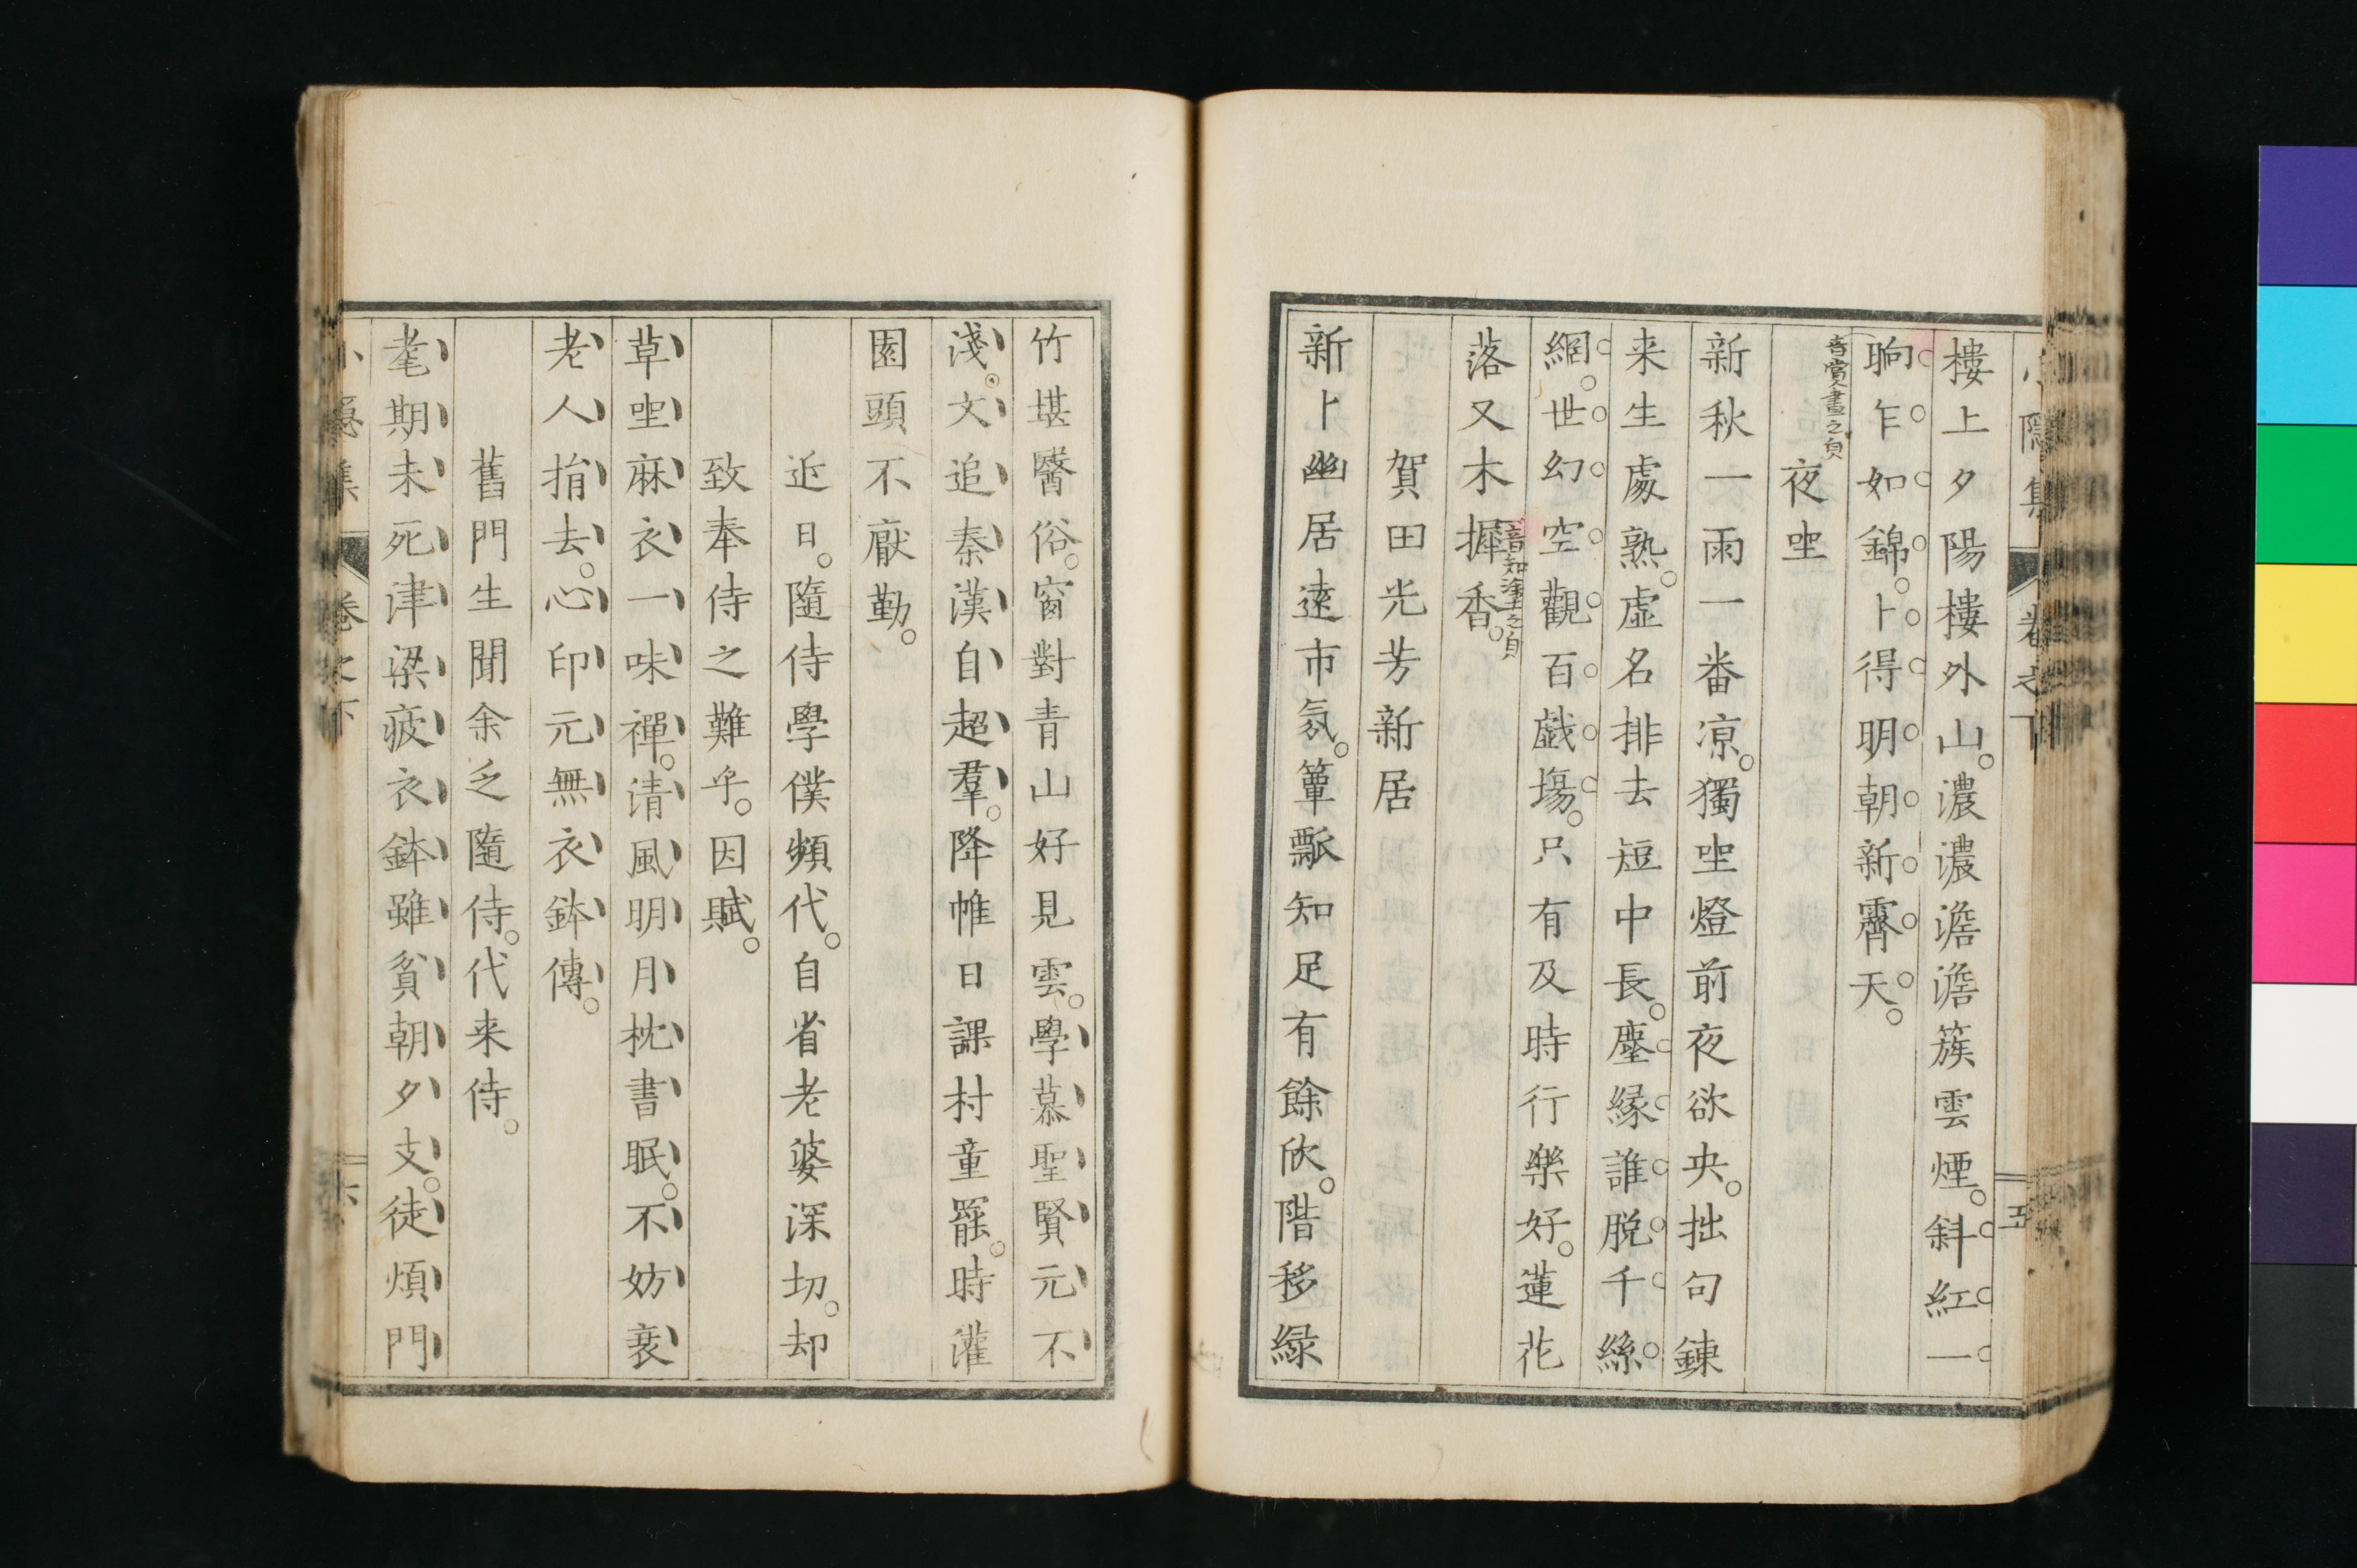 小隱集 卷之下 五
樓上夕陽樓外山。濃濃澹澹簇雲煙。斜紅一
晌乍如錦。卜得明朝新霽天。
夜坐
新秋一雨一番凉。獨坐燈前夜欲央。拙句鍊
来生處熟。虛名排去短中長。塵縁誰脱千絲
網。世幻空觀百戯塲。只有及時行樂好。蓮花
落又木揮香。
賀田光芳新居
新卜幽居遠市氛。簞瓢知足有餘欣。階移緑
竹堪醫俗。窗對青山好見雲。學慕聖賢元不
淺。文追秦漢自超羣。降帷日課村童罷。時灌
園頭不厭勤。
近日。隨侍學僕頻代。自省老婆深切。却
致奉侍之難乎。因賦。
草坐麻衣一味禪。清風明月枕書眠。不妨衰
老人捎去。心印元無衣鉢傳。
舊門生聞余乏隨侍。代来侍。
耄期未死津梁疲。衣鉢雖貧朝夕支。徒煩門
小隱集 卷之下 六